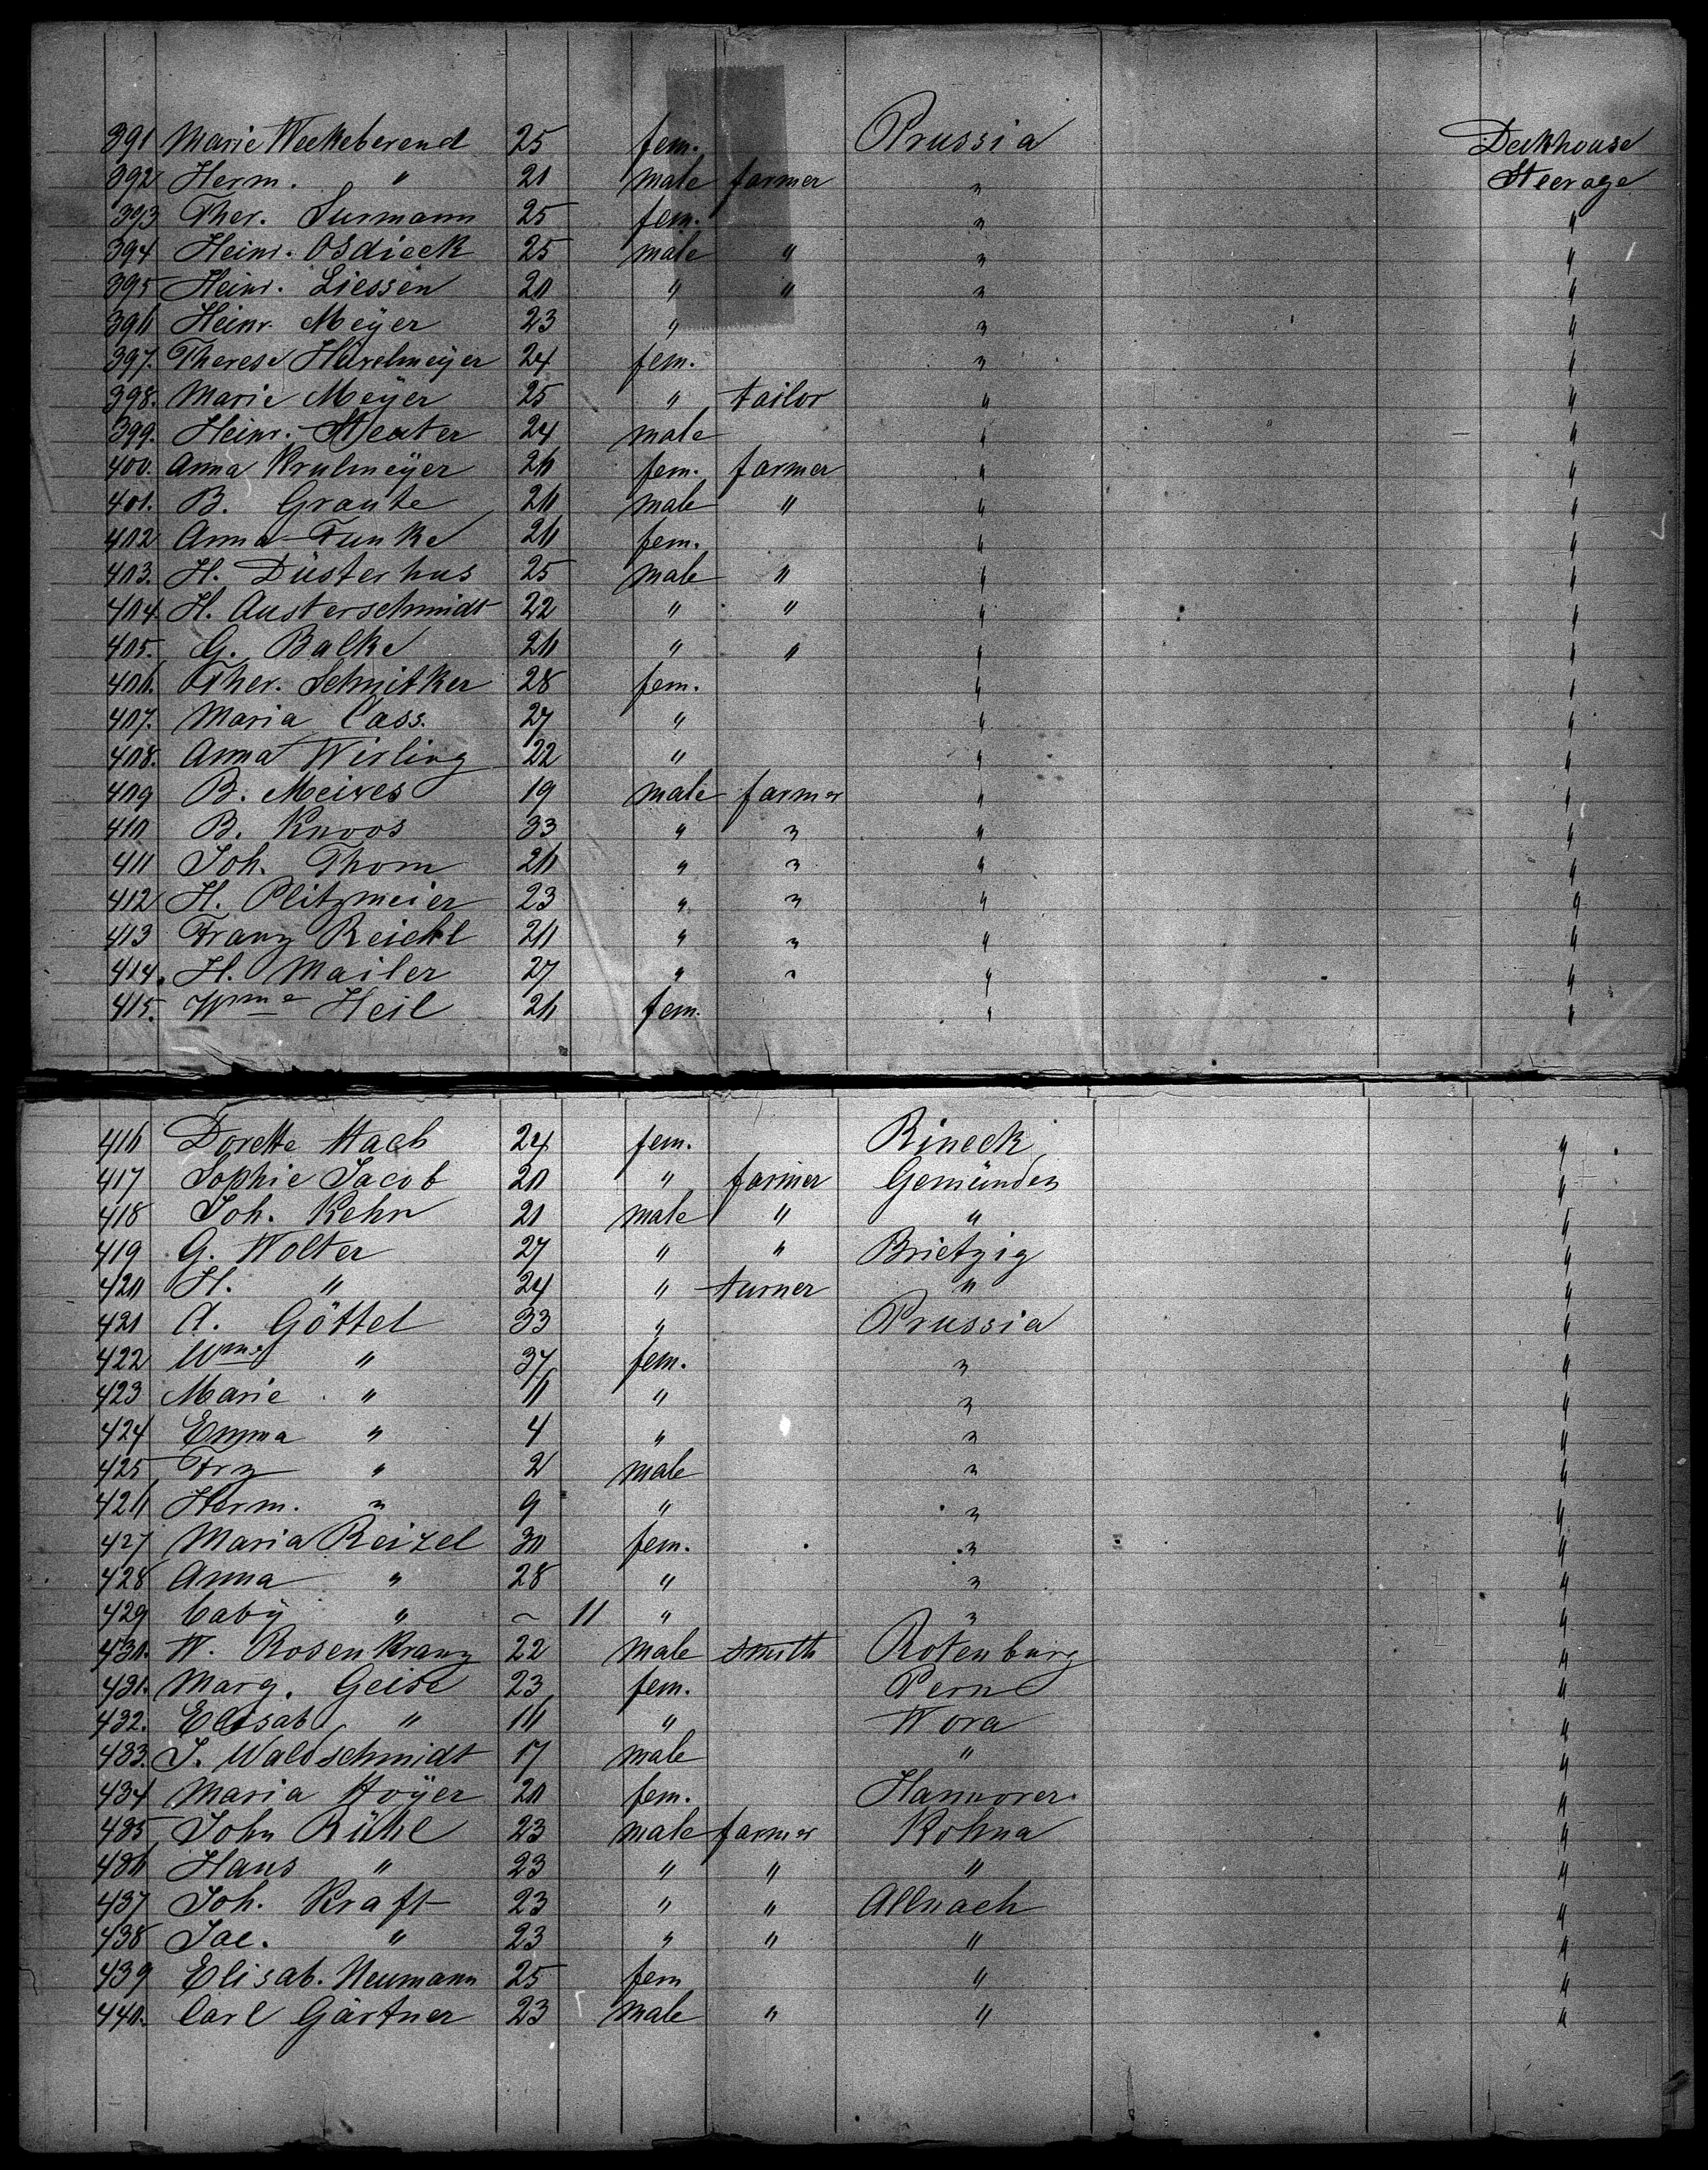 391 Marie Weekeberend 25 fem. Prussia Deckhouse
392 Herm. " 20 male farmer " Steerage
393 Ther. Surmann 25 fem. " "
394 Heinr. Osdieck 25 male " " "
395 Heinr. Liessen 20 " " " "
396 Heinr. Meÿer 23 " " "
397. Therese Hüvelmeÿer 24 fem. " "
398. Marie Meÿer 25 " tailor " "
399. Heinr. Steuter 24 male " "
400. Anna Krulmeÿer 26 fem. farmer " "
401. B. Graute 20 male " " "
402 Anna Funke 26 fem. " "
403. H. Düsterhus 25 male " " "
404. H. Austerschmidt 22 " " " "
405. G. Balke 26 " " " "
406. Ther. Schnitker 28 fem. " "
407. Maria Cass. 27 " " "
408. Anna Wirling 22 " " "
409 B. Meiwes 19 male farmer " "
410 B. Knoos 33 " " " "
411 Joh. Thom 26 " " " "
412 H. Plitzmeier 23 " " " "
413 Franz Reickl 20 " " " "
414. H. Mailer 27 " " " "
415. Wme Heil 26 fem. " "
416 Dorette Stack 24 fem. Rineck "
417 Sophie Jacob 20 " farmer Gemünden "
418 Joh. Kehr 20 male " " "
419 G. Wolter 27 " " Brietzig "
420 H. " 24 " turner " "
421 A. Göttel 33 " Prussia "
422 Wme " 37 fem. " "
423 Marie " 11 " " "
424 Emma " 4 " " "
425 Frz " 2 male " "
426 Herm. " 9 " " "
427 Maria Reizel 30 fem. " "
428 Anna " 28 " " "
429 Cabÿ " ~ 11 " " "
430. W. Rosenkranz 22 male smith Rotenburg "
431. Marg. Geise 23 fem. Pern "
432. Elisab. " 16 " Wora "
433. J. Waldschmidt 17 male " "
434 Maria Hoÿer 20 fem. Hannover. "
435 John Rühl 23 male farmer Rohna "
436 Hans " 23 " " " "
437 Joh. Kraft 23 " " Allnach "
438 Jac. " 23 " " " "
439 Elisab. Neumann 25 fem " "
440. Carl Gärtner 23 male " " "